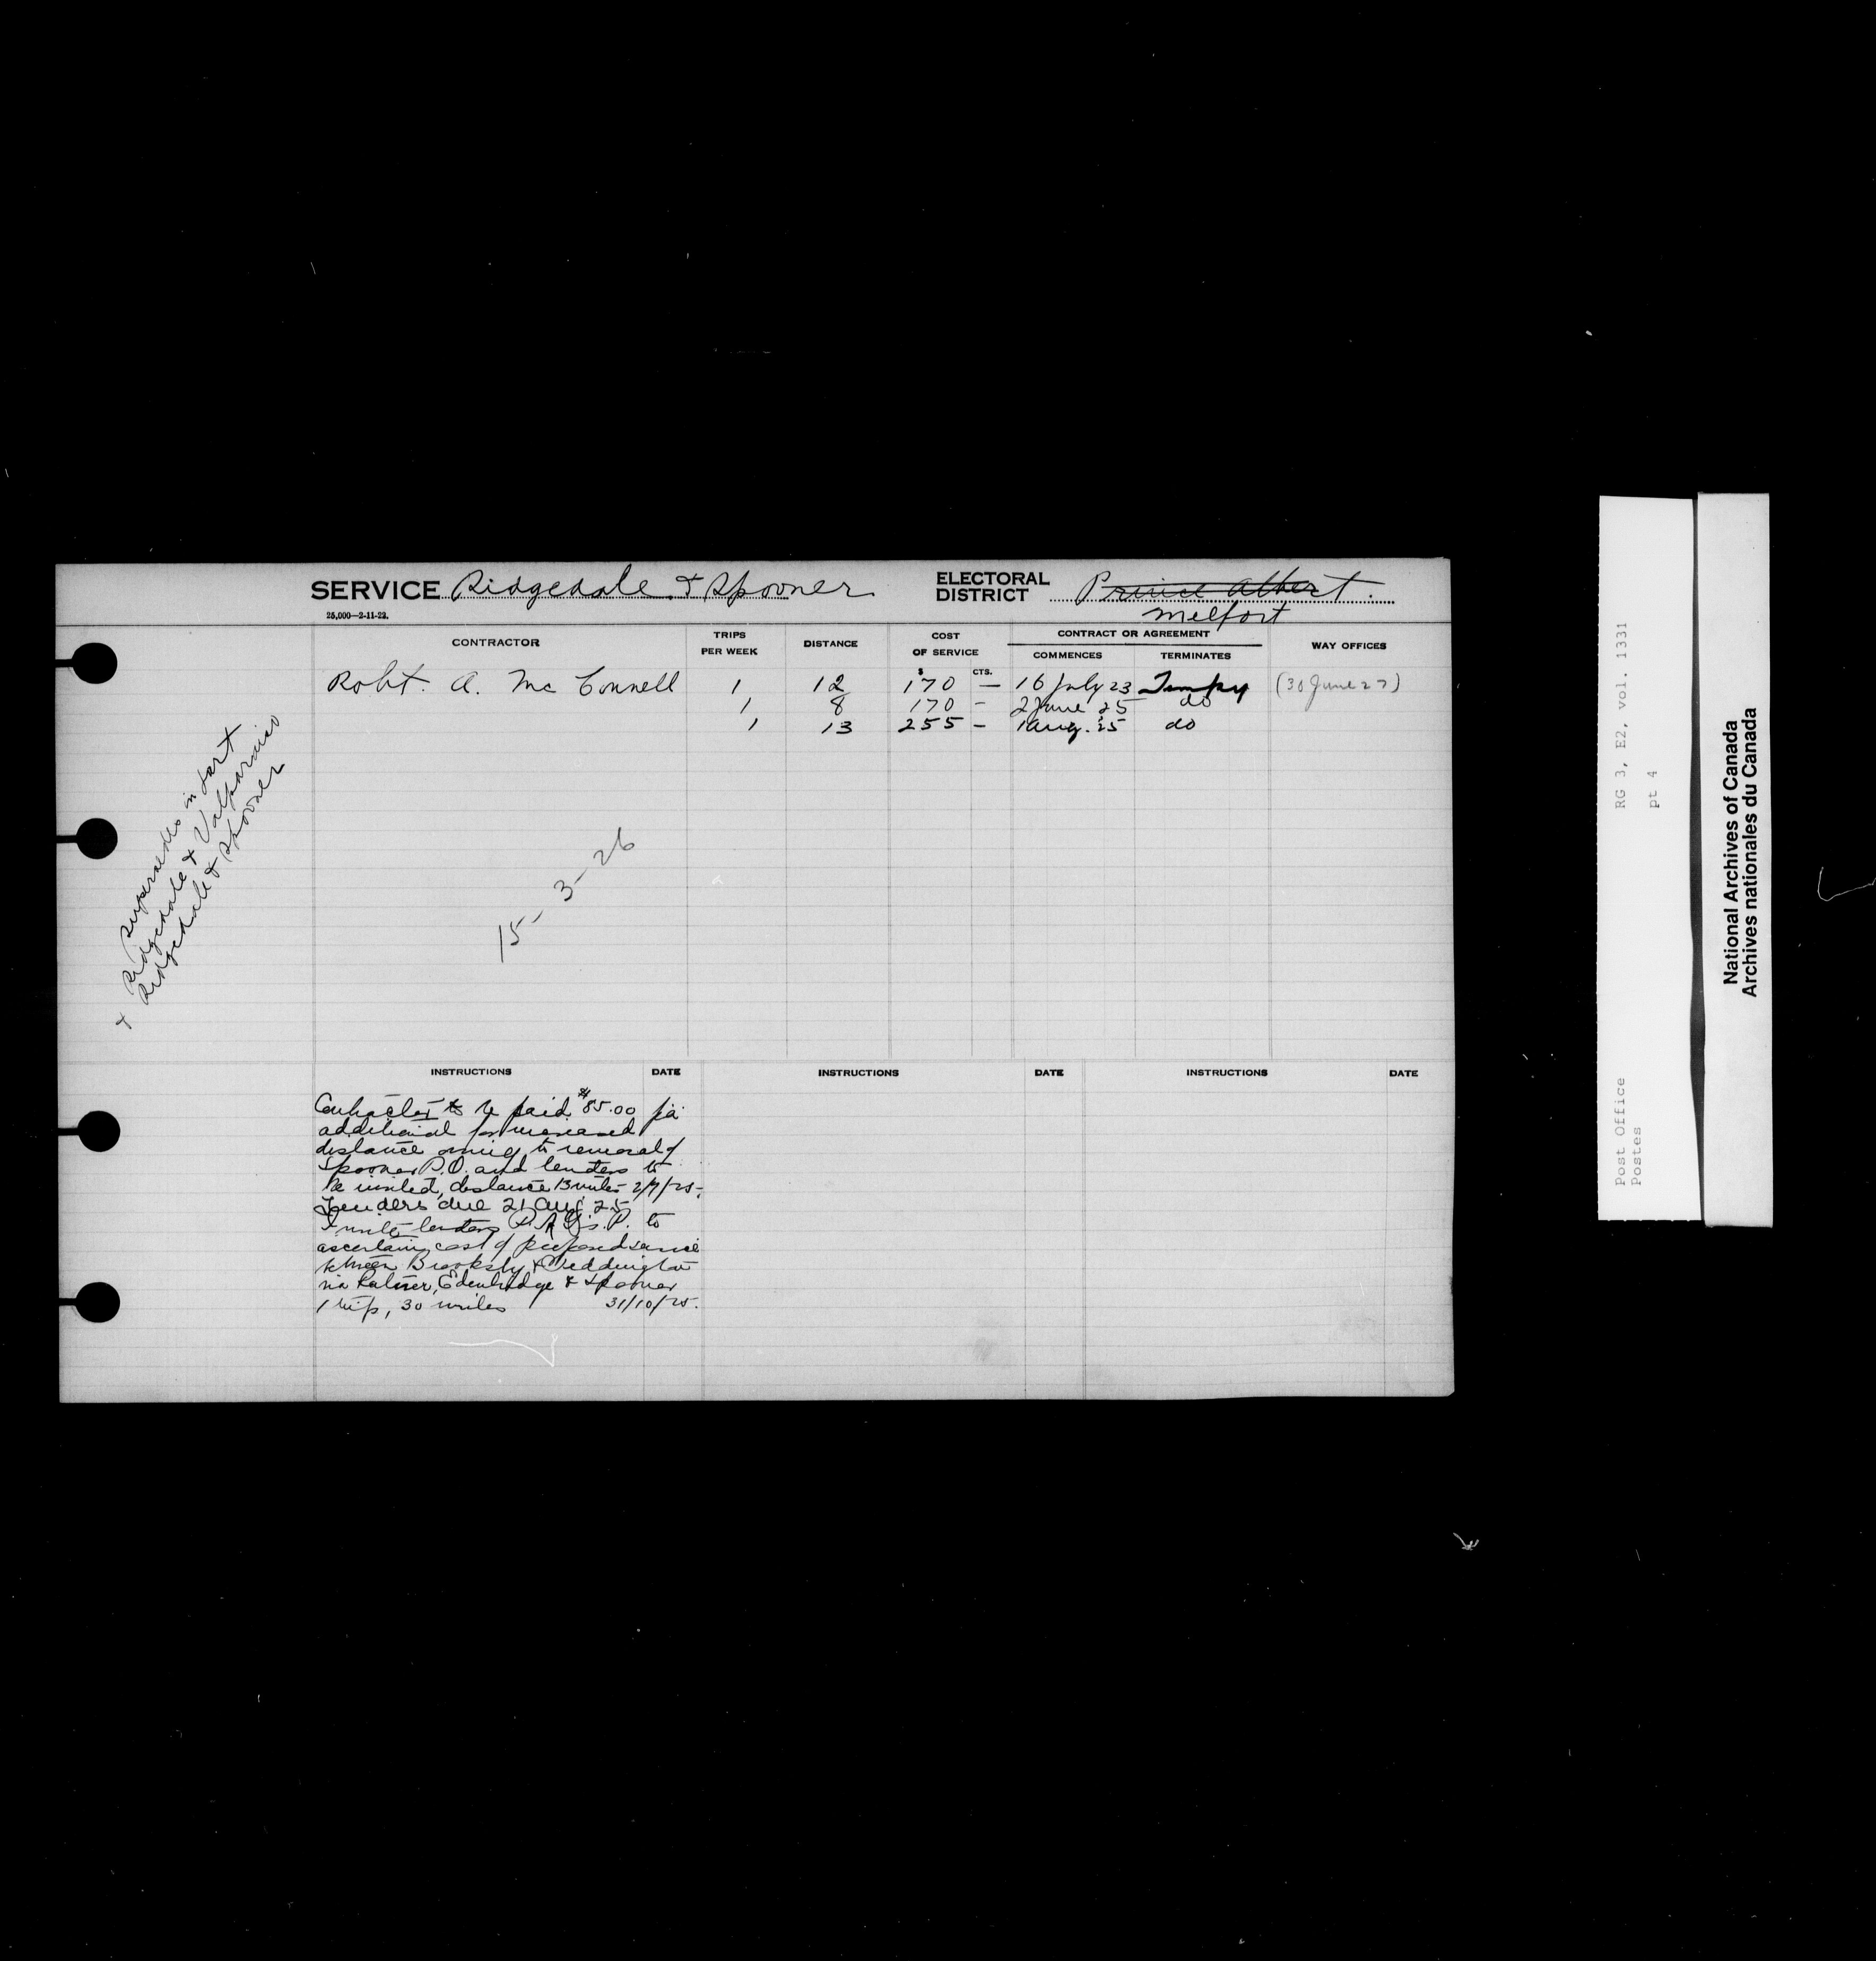 SERVICE Ridgedale & Spooner
25,000—2-11-22.
ELECTORAL DISTRICT Prince Albert.
Melfort
CONTRACTOR
TRIPS PER WEEK
DISTANCE
COST OF SERVICE
$ CTS.
CONTRACT OR AGREEMENT
COMMENCES TERMINATES
WAY OFFICES
Robt. A. McConnell 1 12 170 — 16 July 23 Tempy (30 June 27)
1 8 170 — 2 June 25 do
1 13 255 — 1 Aug. 25 do
Supersedes in part
Ridgedale & Valparaiso
& Ridgedale & Spooner
15-3-26
INSTRUCTIONS DATE INSTRUCTIONS DATE INSTRUCTIONS DATE
Contractor to be paid $85.00 pa
additional for increased
distance owing to removal of
Spooner P.O. and tenders to
be invited, distance 13 miles - 2/7/25.
Tenders due 21 Aug. 25
Invite tenders to
ascertain cost of proposed service
between Brooksby & Teddington
via Ratner, Edenbridge & Spooner
1 trip, 30 miles 31/10/25.
RG 3, E2, vol. 1331
pt 4
Post Office
Postes
National Archives of Canada
Archives nationales du Canada